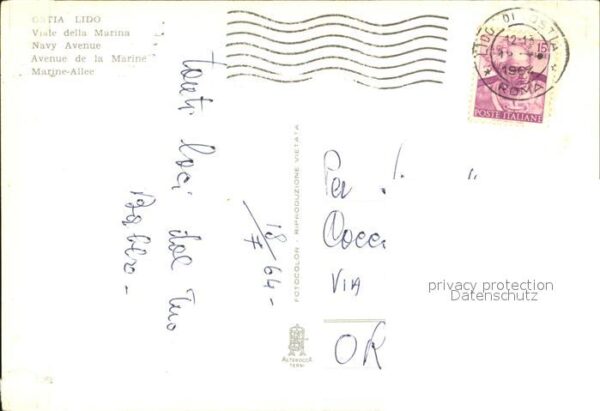 OSTIA LIDO
Viale della Marina
Navy Avenue
Avenue de la Marine
Marine-Allee
LIDO DI OSTIA
12-13
1964
ROMA
15
POSTE ITALIANE
tanti baci dal tuo
18/7 64-
FOTOCOLOR - RIPRODUZIONE VIETATA
ALTEROCCA
TERNI
Per
VIA
OR
privacy protection
Datenschutz